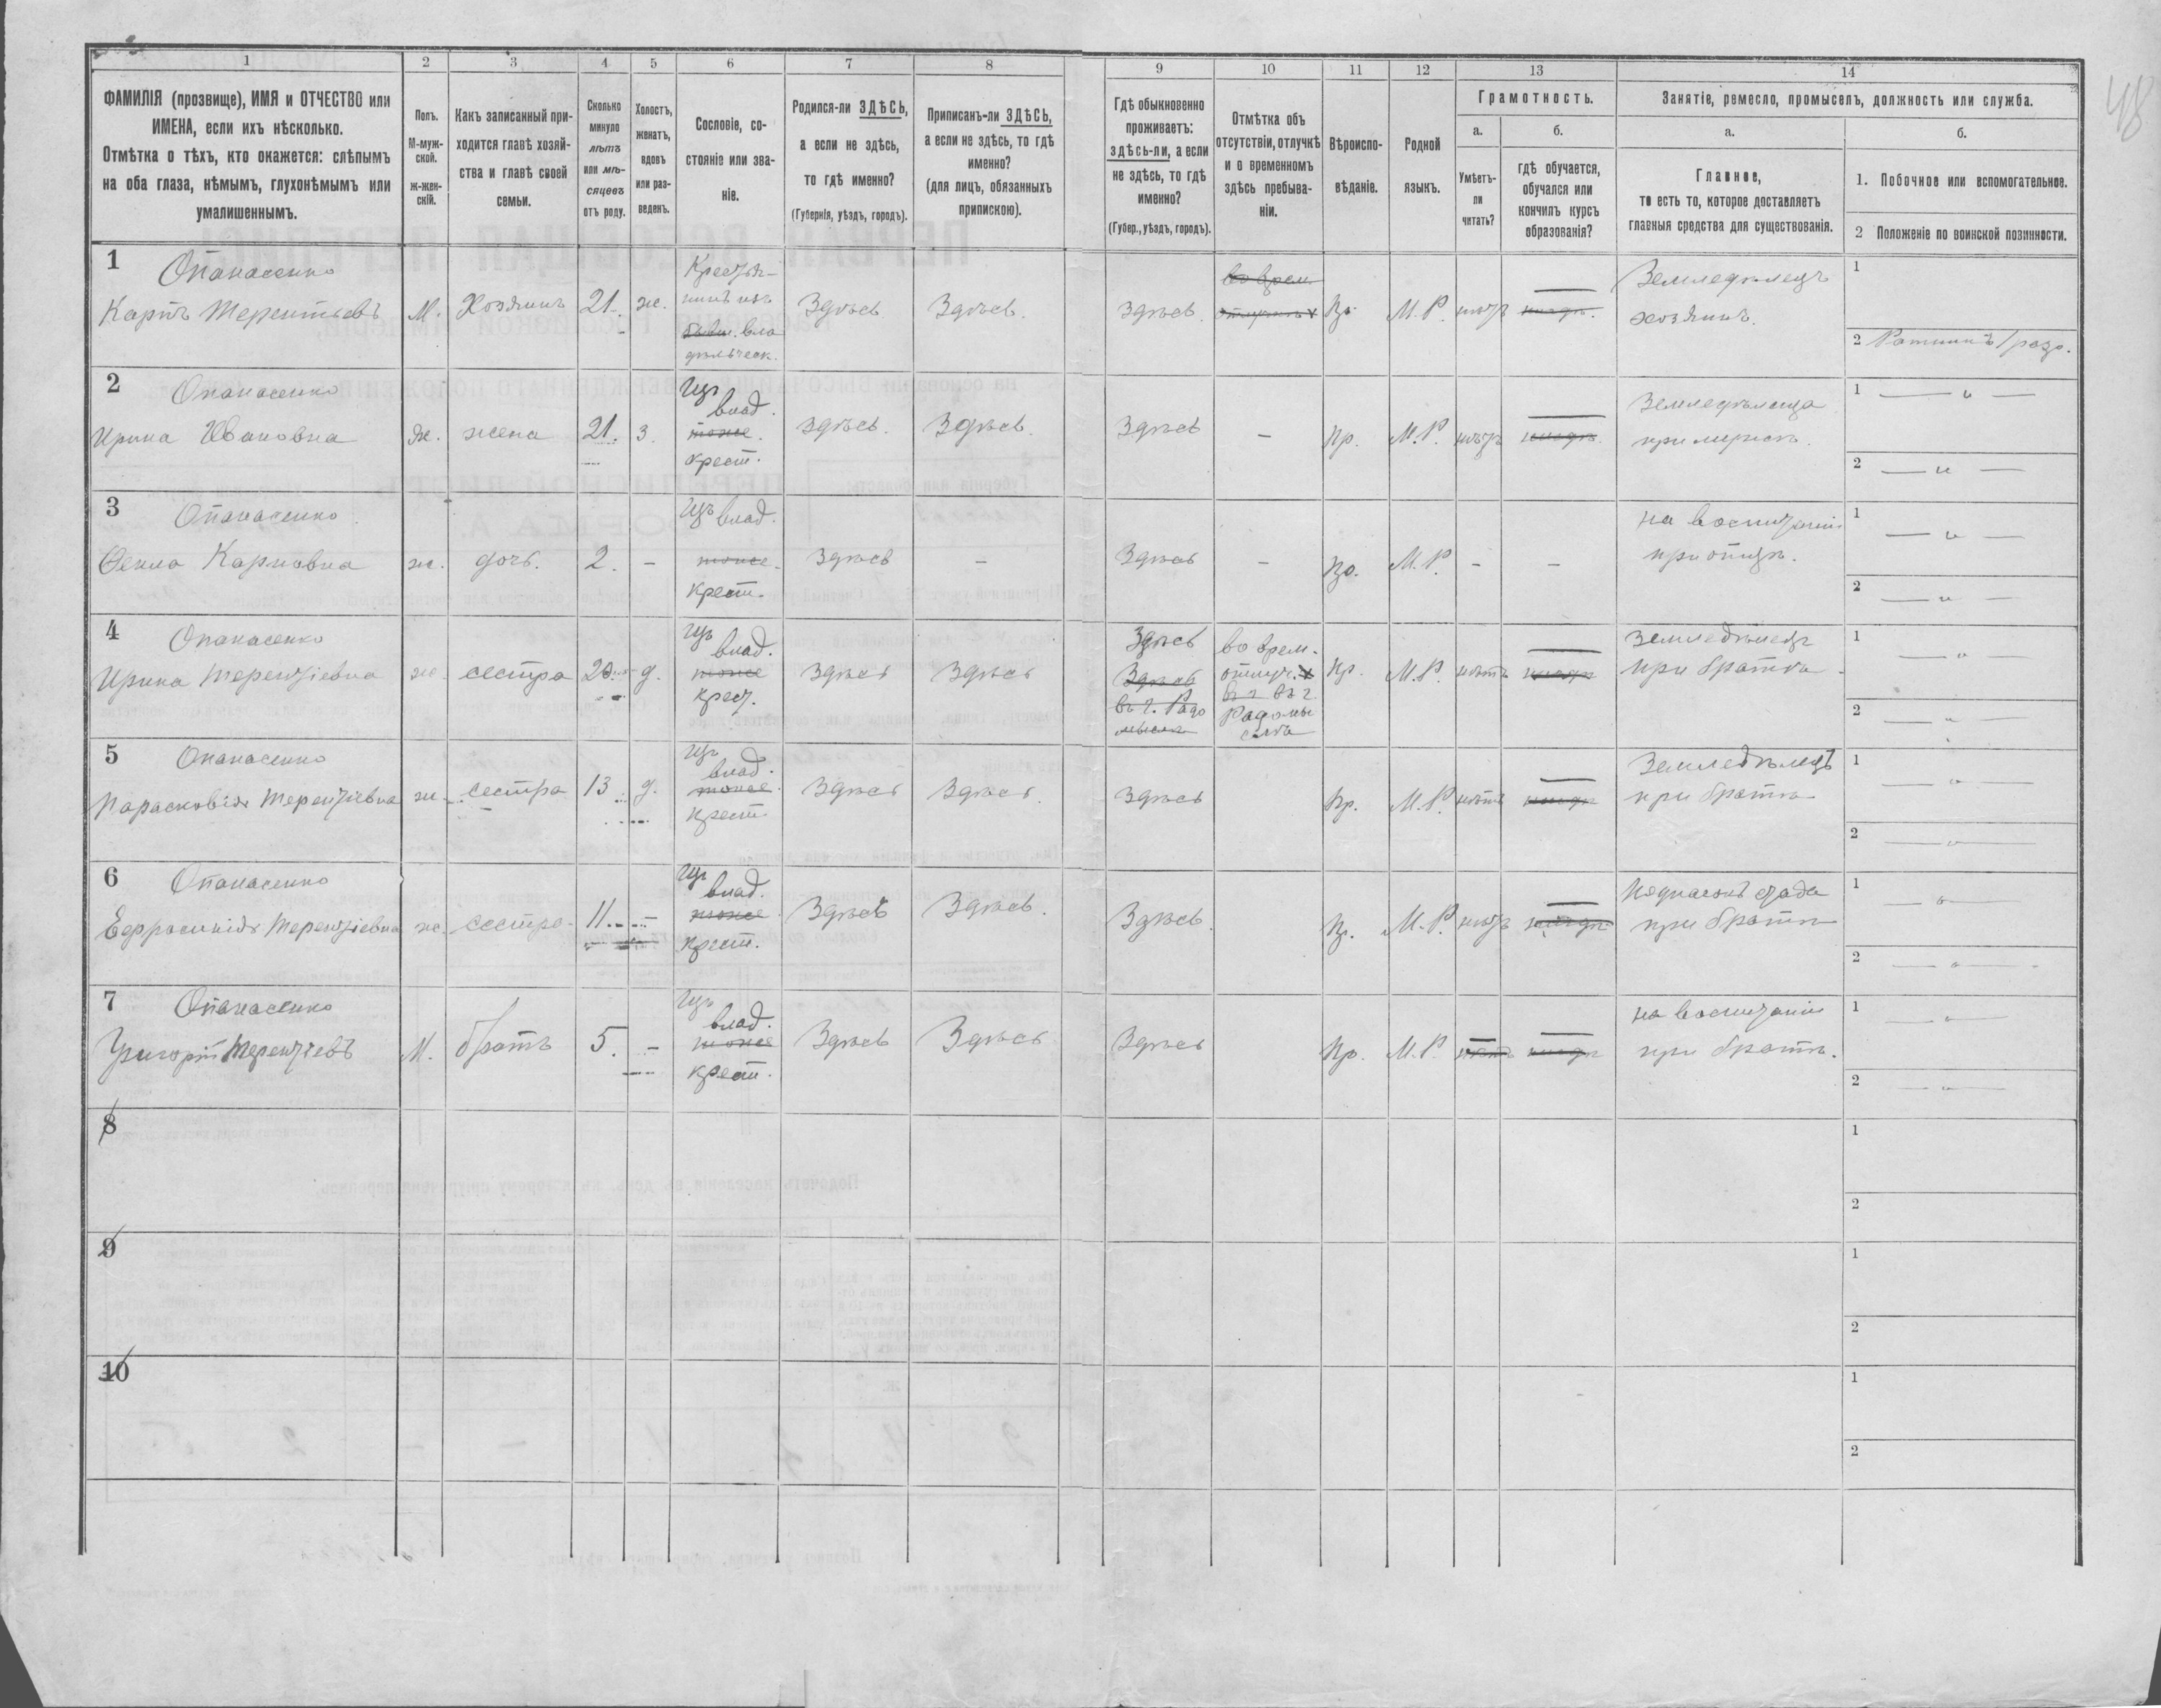 1 2 3 4 5 6 7 8 9 10 11 12 13 14
ФАМИЛІЯ (прозвище), ИМЯ и ОТЧЕСТВО или
ИМЕНА, если ихъ нѣсколько.
Отмѣтка о тѣхъ, кто окажется: слѣпымъ
на оба глаза, нѣмымъ, глухонѣмымъ или
умалишеннымъ.
Полъ.
М-муж-
ской.
ж-жен-
скій.
Какъ записанный при-
ходится главѣ хозяй-
ства и главѣ своей
семьи.
Сколько
минуло
лѣтъ
или мѣ-
сяцевъ
отъ роду.
Холостъ,
женатъ,
вдовъ
или раз-
веденъ.
Сословіе, со-
стояніе или зва-
ніе.
Родился-ли ЗДѢСЬ,
а если не здѣсь,
то гдѣ именно?
(Губернія, уѣздъ, городъ).
Приписанъ-ли ЗДѢСЬ,
а если не здѣсь, то гдѣ
именно?
(для лицъ, обязанныхъ
припискою).
Гдѣ обыкновенно
проживаетъ:
здѣсь-ли, а если
не здѣсь, то гдѣ
именно?
(Губер., уѣздъ, городъ).
Отмѣтка объ
отсутствіи, отлучкѣ
и о временномъ
здѣсь пребыва-
ніи.
Вѣроиспо-
вѣданіе.
Родной
языкъ.
Грамотность.
а.
Умѣетъ-
ли
читать?
б.
гдѣ обучается,
обучался или
кончилъ курсъ
образованія?
Занятіе, ремесло, промыселъ, должность или служба.
а.
Главное,
то есть то, которое доставляетъ
главныя средства для существованія.
б.
1. Побочное или вспомогательное.
2 Положеніе по воинской повинности.
48
1 Опанасенко
Карпъ Терентьевъ М. Хозяинъ 21. ж.
Крестья-
нинъ изъ
бывш. вла
дѣльческ.
Здѣсь Здѣсь. Здѣсь.
во врем.
отлучкѣ х
Пр. М.Р. нѣтъ нигдѣ.
Земледѣлецъ
хозяинъ.
1
2 Ратникъ 1 разр.
2 Опанасенко
Ирина Ивановна Ж. жена 21. з.
Изъ
влад.
тоже.
крест.
Здѣсь. Здѣсь. Здѣсь – Пр. М.Р. нѣтъ нигдѣ.
Земледѣлица
1 — " —
2 — " —
3 Опанасенко
Ѳекла Карповна ж. дочь. 2. –
Изъ влад.
тоже.
крест.
Здѣсь – Здѣсь – Пр. М.Р. – –
на воспитаніи
при отцѣ.
1 — " —
2 — " —
4 Опанасенко
Ирина Терентіевна ж. сестра 20 д.
Изъ
влад.
тоже
крест.
Здѣсь Здѣсь
Здѣсь
Здѣсь
въ г. Радо
мыслѣ
во врем.
отлуч. х
въ г. въ г.
Радомы
слѣ
Пр. М.Р. нѣтъ нигдѣ
Земледѣлецъ
при братѣ
1 — " —
2 — " —
5 Опанасенко
Парасковія Терентіевна ж. сестра 13 д.
Изъ
влад.
тоже.
крест.
Здѣсь Здѣсь. Здѣсь Пр. М.Р. нѣтъ нигдѣ
Земледѣлецъ
при братѣ
1 — " —
2 — " —
6 Опанасенко
Ефросинія Терентіевна ж. сестра 11. –
Изъ
влад.
тоже
крест.
Здѣсь Здѣсь. Здѣсь. Пр. М.Р. нѣтъ нигдѣ
Подпасокъ стада
при братѣ
1 — " —
2 — " —
7 Опанасенко
Григорій Терентіевъ М. братъ 5. –
Изъ
влад.
тоже
крест.
Здѣсь Здѣсь Здѣсь Пр. М.Р. нѣтъ нигдѣ
на воспитаніи
при братѣ.
1 — " —
2 — " —
8
1
2
9
1
2
10
1
2